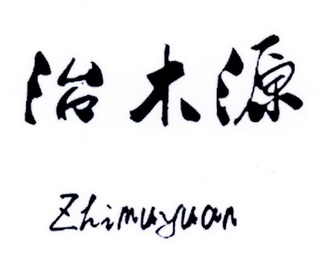 治木源
Zhimuyuan